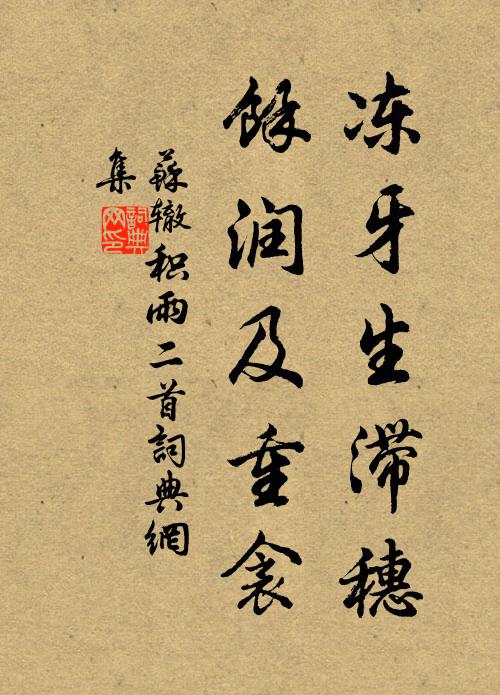 冻牙生滞穗
餘润及重衾
蘇辙积雨二首詞典網
集
詞典
网印